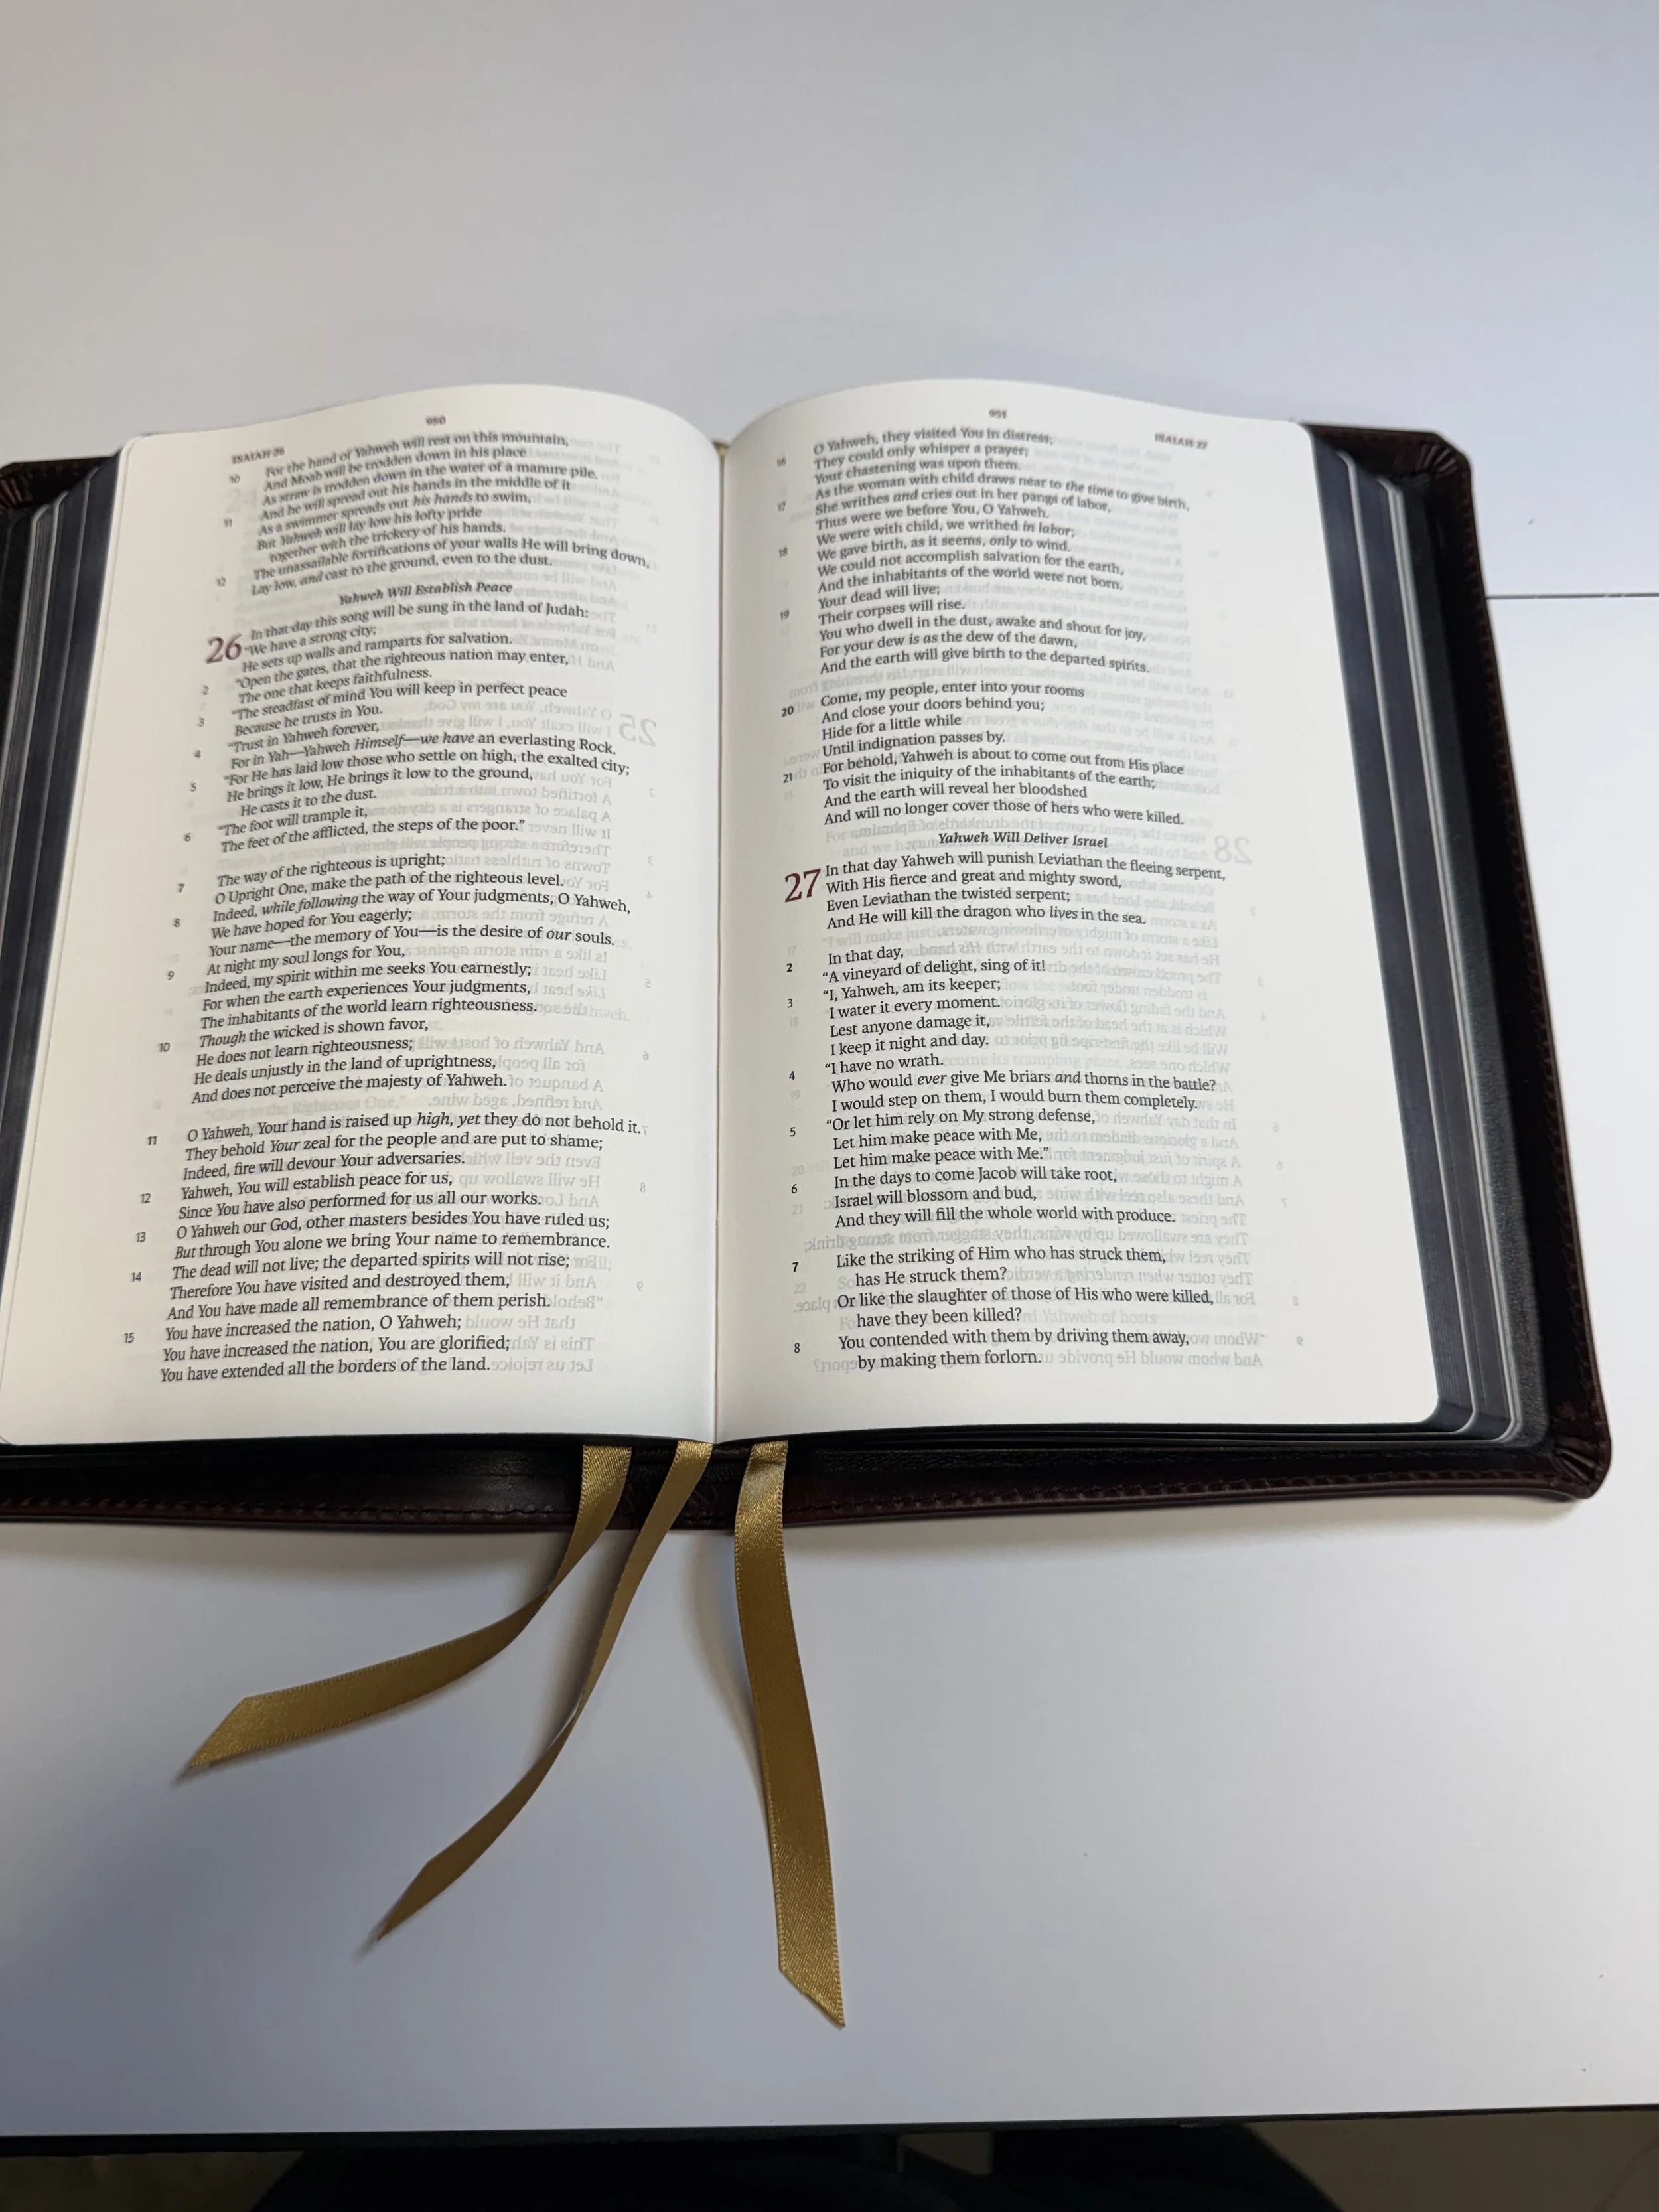 950
ISAIAH 26
For the hand of Yahweh will rest on this mountain,
10 And Moab will be trodden down in his place
As straw is trodden down in the water of a manure pile.
11 And he will spread out his hands in the middle of it
As a swimmer spreads out his hands to swim,
But Yahweh will lay low his lofty pride
together with the trickery of his hands.
12 The unassailable fortifications of your walls He will bring down,
Lay low, and cast to the ground, even to the dust.
Yahweh Will Establish Peace
26 In that day this song will be sung in the land of Judah:
“We have a strong city;
He sets up walls and ramparts for salvation.
2 “Open the gates, that the righteous nation may enter,
The one that keeps faithfulness.
3 “The steadfast of mind You will keep in perfect peace
Because he trusts in You.
4 “Trust in Yahweh forever,
For in Yah—Yahweh Himself—we have an everlasting Rock.
5 “For He has laid low those who settle on high, the exalted city;
He brings it low, He brings it low to the ground,
He casts it to the dust.
6 “The foot will trample it,
The feet of the afflicted, the steps of the poor.”
7 The way of the righteous is upright;
O Upright One, make the path of the righteous level.
8 Indeed, while following the way of Your judgments, O Yahweh,
We have hoped for You eagerly;
Your name—the memory of You—is the desire of our souls.
9 At night my soul longs for You,
Indeed, my spirit within me seeks You earnestly;
For when the earth experiences Your judgments,
The inhabitants of the world learn righteousness.
10 Though the wicked is shown favor,
He does not learn righteousness;
He deals unjustly in the land of uprightness,
And does not perceive the majesty of Yahweh.
11 O Yahweh, Your hand is raised up high, yet they do not behold it.
They behold Your zeal for the people and are put to shame;
Indeed, fire will devour Your adversaries.
12 Yahweh, You will establish peace for us,
Since You have also performed for us all our works.
13 O Yahweh our God, other masters besides You have ruled us;
But through You alone we bring Your name to remembrance.
14 The dead will not live; the departed spirits will not rise;
Therefore You have visited and destroyed them,
And You have made all remembrance of them perish.
15 You have increased the nation, O Yahweh;
You have increased the nation, You are glorified;
You have extended all the borders of the land.
951
ISAIAH 27
16 O Yahweh, they visited You in distress;
They could only whisper a prayer;
Your chastening was upon them.
17 As the woman with child draws near to the time to give birth,
She writhes and cries out in her pangs of labor,
Thus were we before You, O Yahweh.
18 We were with child, we writhed in labor;
We gave birth, as it seems, only to wind.
We could not accomplish salvation for the earth,
And the inhabitants of the world were not born.
19 Your dead will live;
Their corpses will rise.
You who dwell in the dust, awake and shout for joy,
For your dew is as the dew of the dawn,
And the earth will give birth to the departed spirits.
20 Come, my people, enter into your rooms
And close your doors behind you;
Hide for a little while
Until indignation passes by.
21 For behold, Yahweh is about to come out from His place
To visit the iniquity of the inhabitants of the earth;
And the earth will reveal her bloodshed
And will no longer cover those of hers who were killed.
Yahweh Will Deliver Israel
27 In that day Yahweh will punish Leviathan the fleeing serpent,
With His fierce and great and mighty sword,
Even Leviathan the twisted serpent;
And He will kill the dragon who lives in the sea.
2 In that day,
“A vineyard of delight, sing of it!
3 “I, Yahweh, am its keeper;
I water it every moment.
Lest anyone damage it,
I keep it night and day.
4 “I have no wrath.
Who would ever give Me briars and thorns in the battle?
I would step on them, I would burn them completely.
5 “Or let him rely on My strong defense,
Let him make peace with Me,
Let him make peace with Me.”
6 In the days to come Jacob will take root,
Israel will blossom and bud,
And they will fill the whole world with produce.
7 Like the striking of Him who has struck them,
has He struck them?
Or like the slaughter of those of His who were killed,
have they been killed?
8 You contended with them by driving them away,
by making them forlorn.